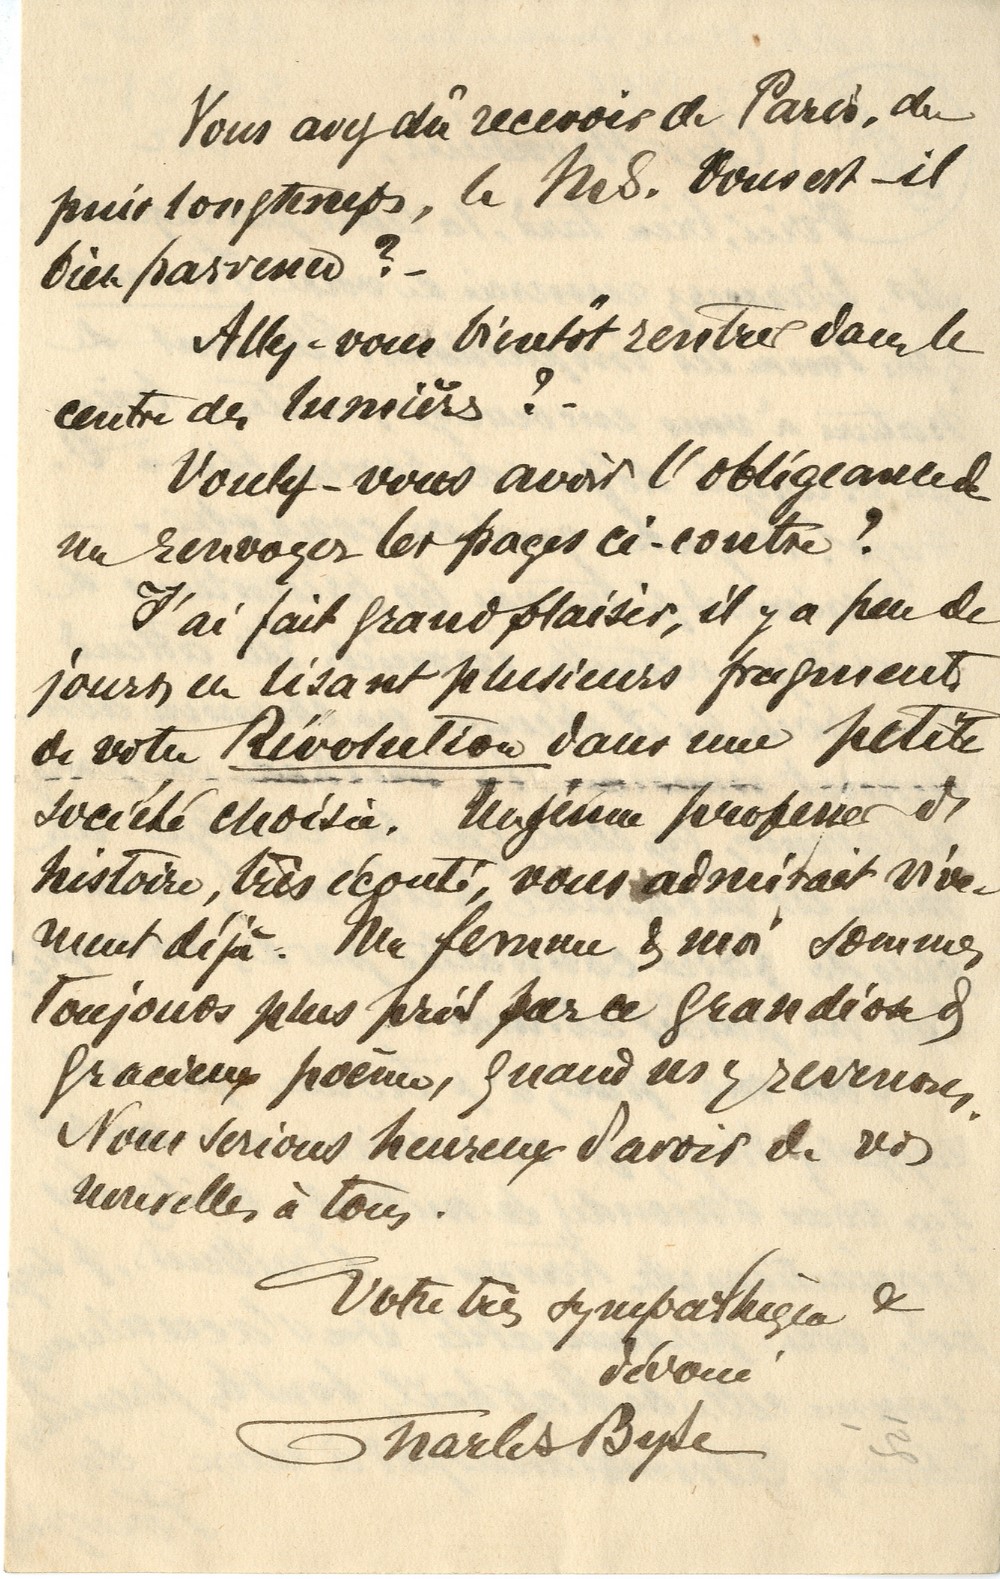 Vous avez dû recevoir de Paris, de-
puis longtemps, le MS. Vous est-il
bien parvenu ? -
Allez-vous bientôt rentrer dans le
centre des lumières ? -
Voulez-vous avoir l'obligeance de
me renvoyer les pages ci-contre ?
J'ai fait grand plaisir, il y a peu de
jours, en lisant plusieurs fragments
de votre Révolution dans une petite
société choisie. Un jeune professeur d'
histoire, très écouté, vous admirait vive-
ment déjà. Ma femme & moi sommes
toujours plus pris par ce grandiose &
gracieux poème, quand ns y revenons.
Nous serions heureux d'avoir de vos
nouvelles à tous.
Votre très sympathique &
dévoué
Charles Byse